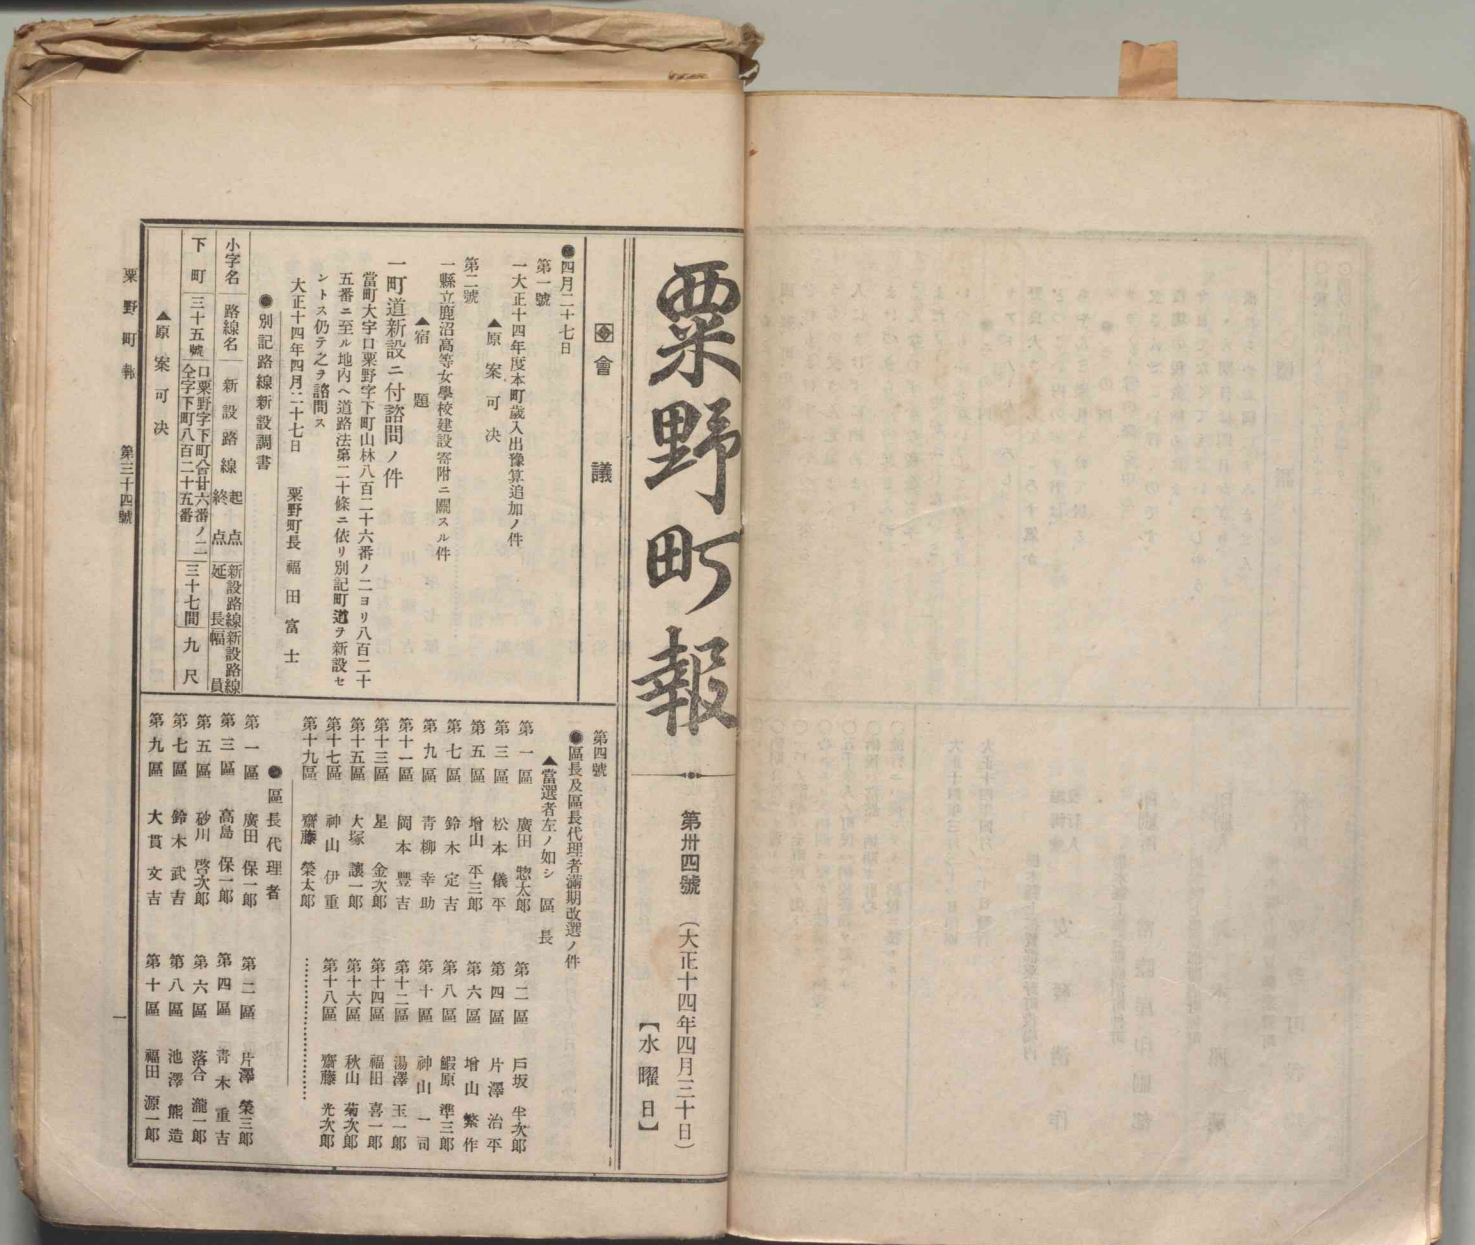 粟野町報
第卅四號 (大正十四年四月三十日)
【水曜日】
會議
●四月二十七日
第一號
一大正十四年度本町歳入出豫算追加ノ件
▲原案可决
第二號
一縣立鹿沼高等女學校建設寄附ニ關スル件
▲宿題
一町道新設ニ付諮問ノ件
當町大字口粟野字下町山林八百二十六番ノ二ヨリ八百二十
五番ニ至ル地内ヘ道路法第二十條ニ依リ別記町道ヲ新設セ
ントス仍テ之ヲ諮問ス
大正十四年四月二十七日 粟野町長 福田富士
●別記路線新設調書
小字名 路線名 新設路線 起点 終点 新設路線延長 新設路線幅員
下町 三十五號 口粟野字下町八百廿六番ノ二 仝字下町八百二十五番 三十七間 九尺
▲原案可决
第四號
●區長及區長代理者滿期改選ノ件
▲當選者左ノ如シ 區長
第一區 廣田惣太郎 第二區 戸坂半次郎
第三區 松本儀平 第四區 片澤治平
第五區 增山平三郎 第六區 增山繁作
第七區 鈴木定吉 第八區 鰕原準三郎
第九區 青柳幸助 第十區 神山一司
第十一區 岡本豐吉 第十二區 湯澤玉一郎
第十三區 星金次郎 第十四區 福田喜一郎
第十五區 大塚讓一郎 第十六區 秋山菊次郎
第十七區 神山伊重 第十八區 齋藤光次郎
第十九區 齋藤榮太郎
●區長代理者
第一區 廣田保一郎 第二區 片澤榮三郎
第三區 高島保一郎 第四區 青木重吉
第五區 砂川啓次郎 第六區 落合瀧一郎
第七區 鈴木武吉 第八區 池澤熊造
第九區 大貫文吉 第十區 福田源一郎
粟野町報 第三十四號 一